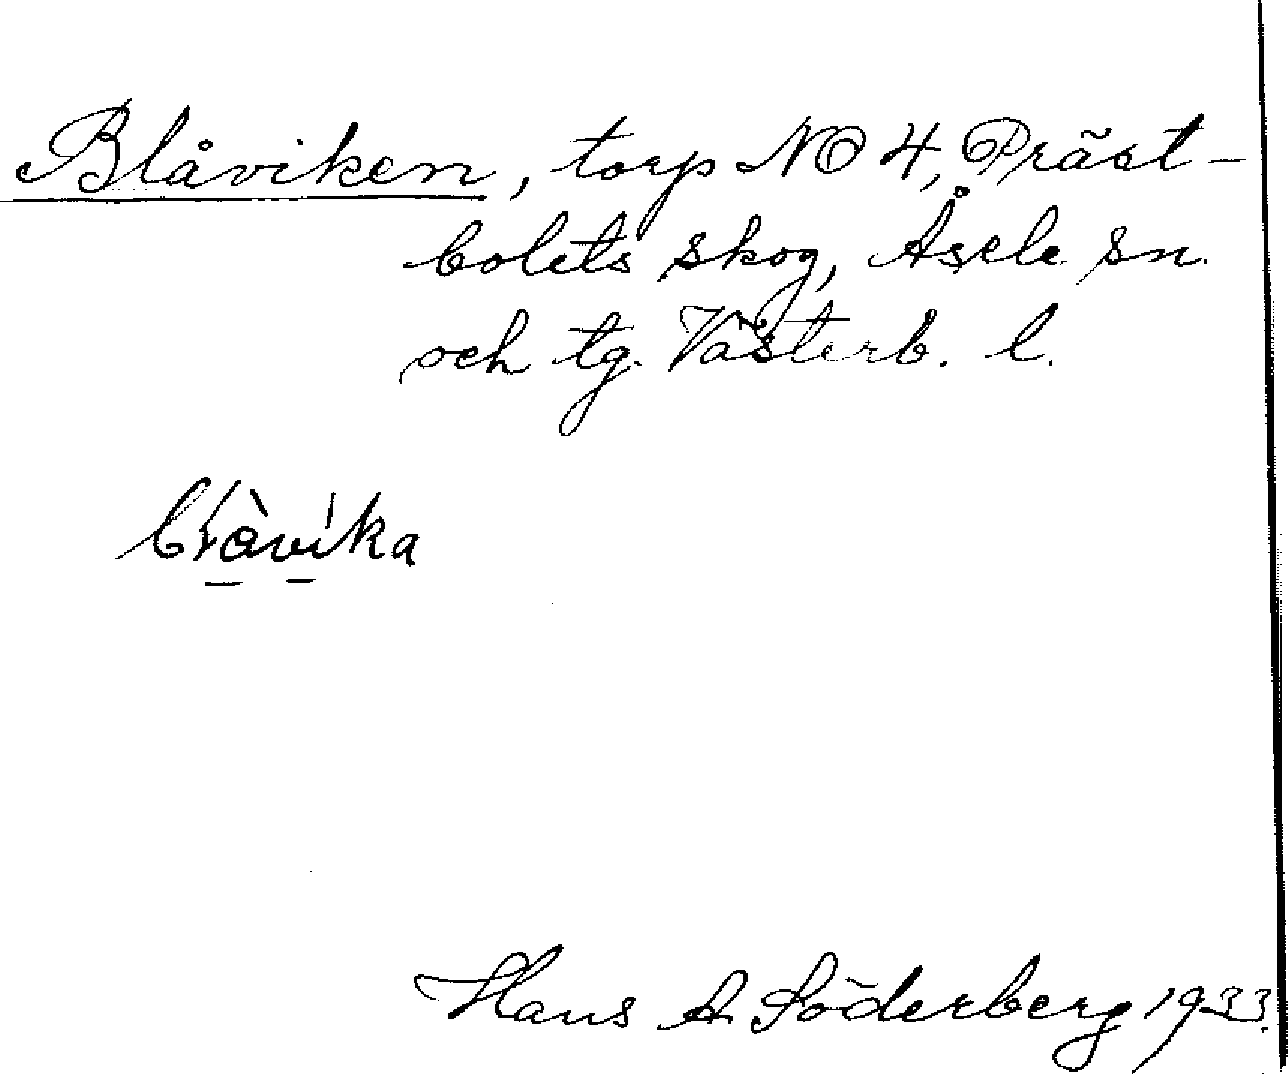 Blåviken, torp NO 4, Präst-
bolets skog, Åsele sn.
och tg. Västerb. l.
blàvika
Hans A. Söderberg 1933.